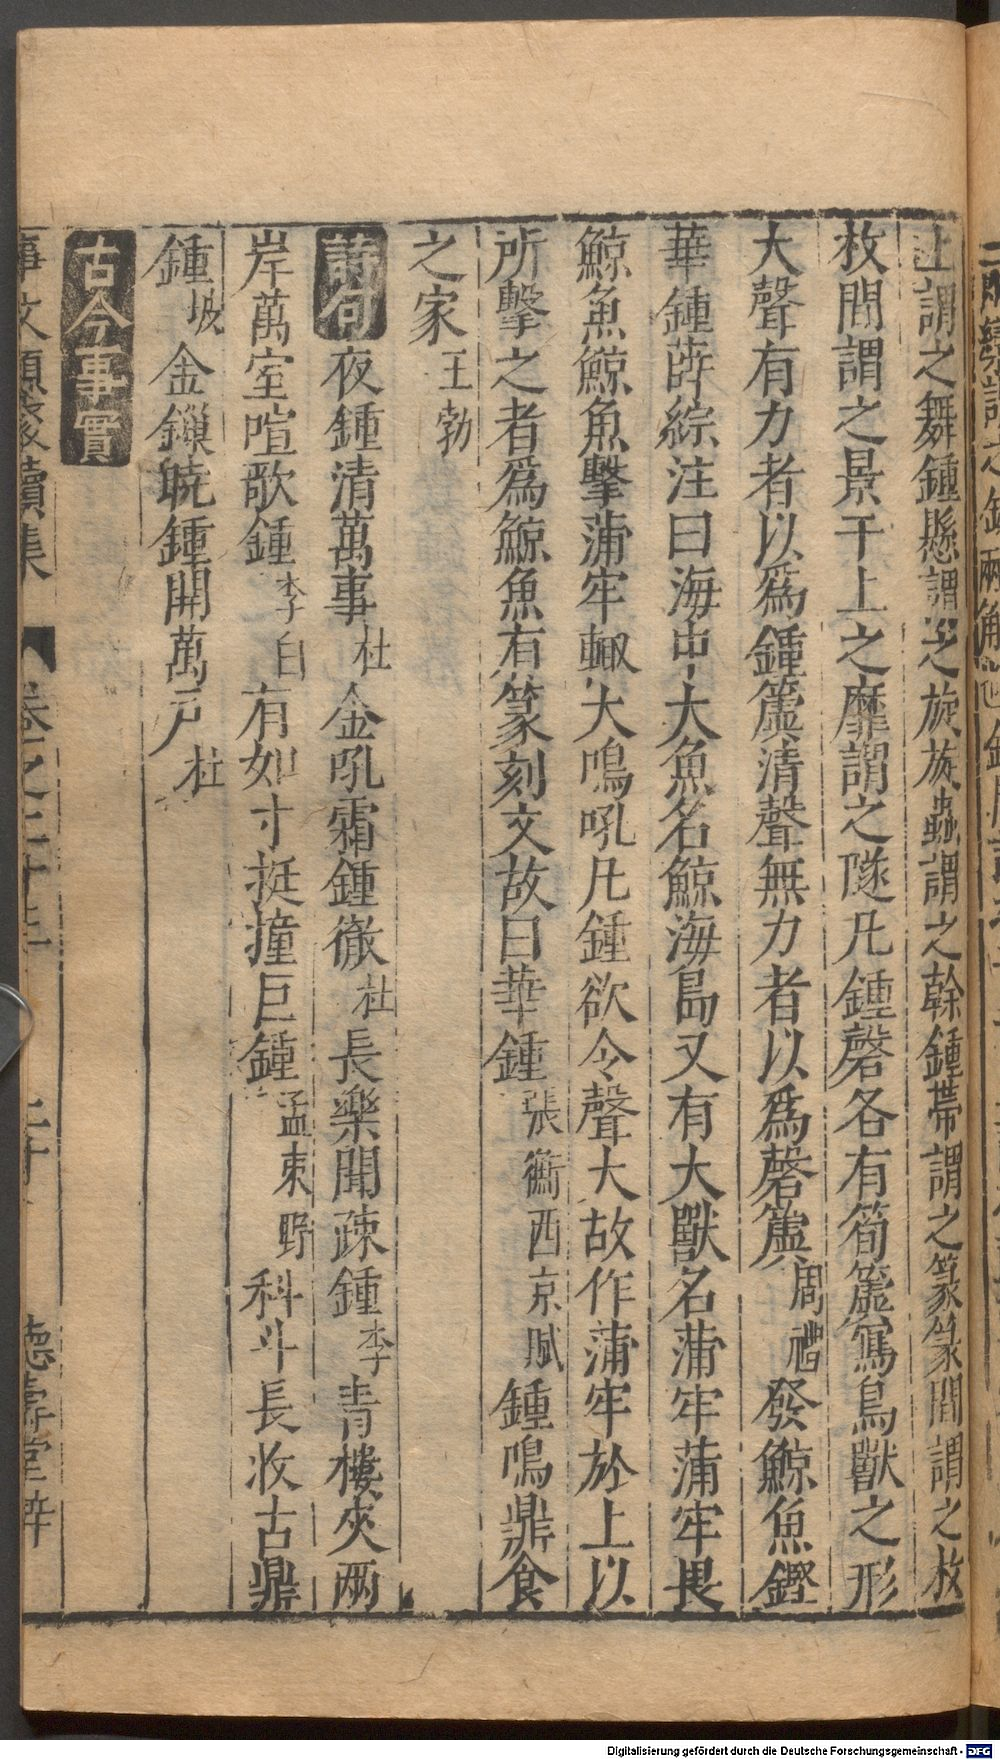 上謂之舞鍾懸謂之旋旋蟲謂之幹鍾帶謂之篆篆間謂之枚
枚間謂之景于上之靡謂之隧凡鍾磬各有筍簴寫鳥獸之形
大聲有力者以爲鍾簴清聲無力者以爲磬簴周禮發鯨魚鏗
華鍾薛綜注曰海中大魚名鯨海島又有大獸名蒲牢蒲牢畏
鯨魚鯨魚擊蒲牢輙大鳴吼凡鍾欲令聲大故作蒲牢於上以
所擊之者爲鯨魚有篆刻文故曰華鍾張衡西京賦鍾鳴鼎食
之家王勃
詩句夜鍾清萬事杜金吼霜鍾徹杜長樂聞疎鍾李青樓夾兩
岸萬室喧歌鍾李白有如寸挺撞巨鐘孟東野科斗長收古鼎
鍾坡金鏁曉鍾開萬戶杜
古今事實
事文類聚續集 卷之二十 德壽堂梓
Digitalisierung gefördert durch die Deutsche Forschungsgemeinschaft - DFG